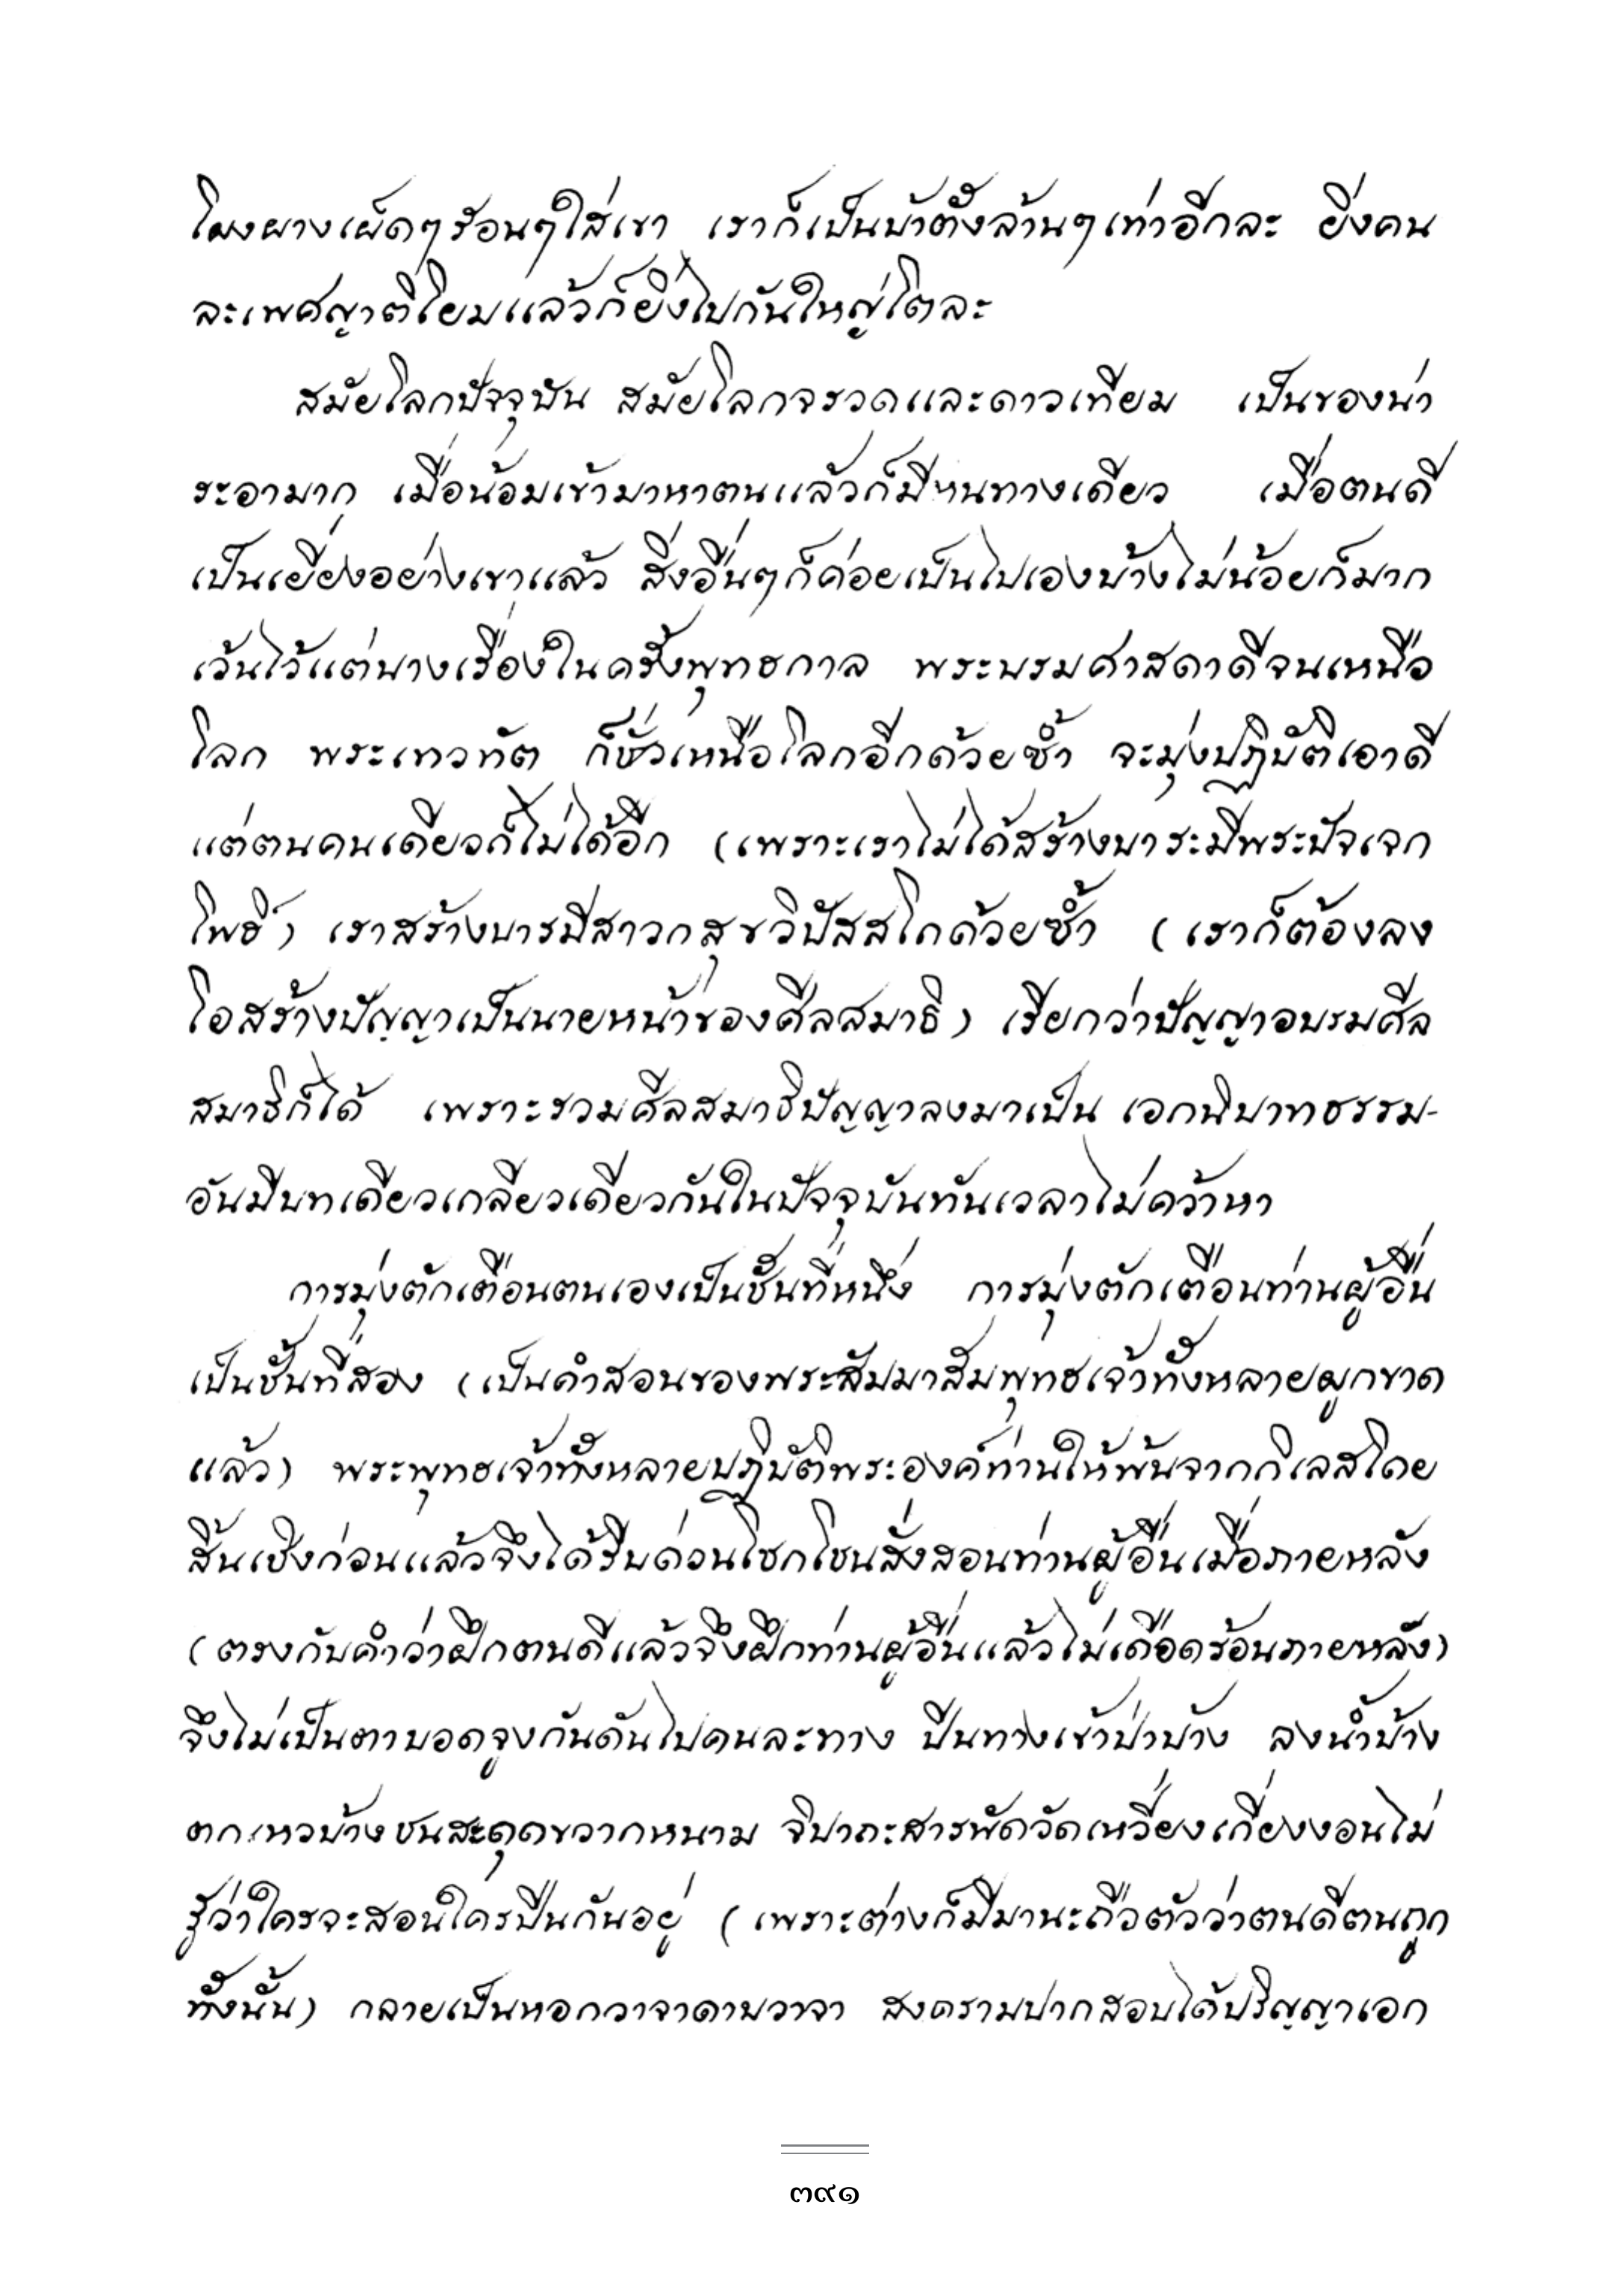 โผงผางเผ็ดๆร้อนๆใส่เขา เราก็เป็นบ้าตั้งล้านๆเท่าอีกละ ยิ่งคน
ละเพศญาติโยมแล้วก็ยิ่งไปกันใหญ่โตละ
สมัยโลกปัจจุบัน สมัยโลกจรวดและดาวเทียม เป็นของน่า
ระอามาก เมื่อน้อมเข้ามาหาตนแล้วก็มีหนทางเดียว เมื่อตนดี
เป็นเยี่ยงอย่างเขาแล้ว สิ่งอื่นๆก็ค่อยเป็นไปเองบ้างไม่น้อยก็มาก
เว้นไว้แต่บางเรื่องในครั้งพุทธกาล พระบรมศาสดาดีจนเหนือ
โลก พระเทวทัต ก็ชั่วเหนือโลกอีกด้วยซ้ำ จะมุ่งปฏิบัติเอาดี
แต่ตนคนเดียวก็ไม่ได้อีก (เพราะเราไม่ได้สร้างบาระมีพระปัจเจก
โพธิ์) เราสร้างบารมีสาวกสุขวิปัสสโกด้วยซ้ำ (เราก็ต้องลง
โอสร้างปัญญาเป็นนายหน้าของศีลสมาธิ) เรียกว่าปัญญาอบรมศีล
สมาธิก็ได้ เพราะรวมศีลสมาธิปัญญาลงมาเป็น เอกนิบาทธรรม-
อันมีบทเดียวเกลียวเดียวกันในปัจจุบันทันเวลาไม่คว้าหา
การมุ่งตักเตือนตนเองเป็นชั้นที่หนึ่ง การมุ่งตักเตือนท่านผู้อื่น
เป็นชั้นที่สอง (เป็นคำสอนของพระสัมมาสัมพุทธเจ้าทั้งหลายผูกขาด
แล้ว) พระพุทธเจ้าทั้งหลายปฏิบัติพระองค์ท่านให้พ้นจากกิเลสโดย
สิ้นเชิงก่อนแล้วจึงได้รีบด่วนโชกโชนสั่งสอนท่านผู้อื่นเมื่อภายหลัง
(ตรงกับคำว่าฝึกตนดีแล้วจึงฝึกท่านผู้อื่นแล้วไม่เดือดร้อนภายหลัง)
จึงไม่เป็นตาบอดจูงกันดันไปคนละทาง ปีนทางเข้าป่าบ้าง ลงน้ำบ้าง
ตกเหวบ้างชนสะดุดขวากหนาม จิปาถะสารพัดวัดเหวี่ยงเกี่ยงงอนไม่
รู้ว่าใครจะสอนใครปีนกันอยู่ (เพราะต่างก็มีมานะถือตัวว่าตนดีตนถูก
ทั้งนั้น) กลายเป็นหอกวาจาดาบวาจา สงครามปากสอบได้ปริญญาเอก
๓๙๑